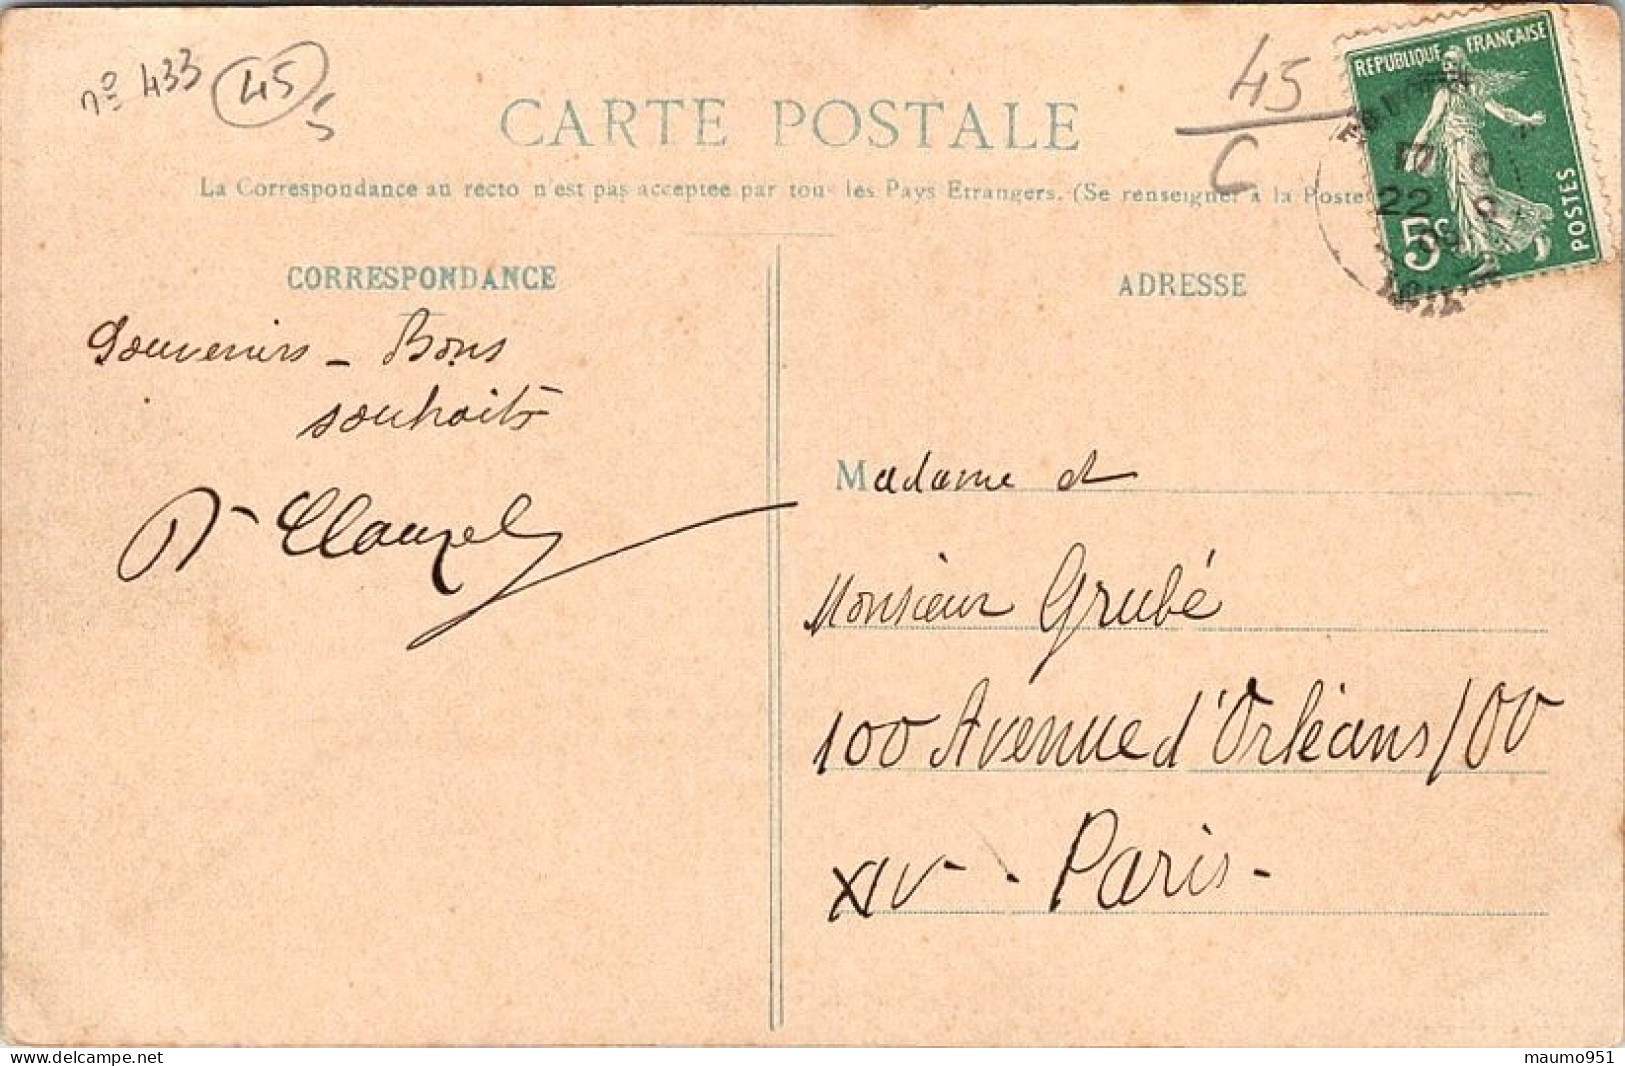 nº 433 45
5
45
C
CARTE POSTALE
La Correspondance au recto n'est pas acceptée par tous les Pays Etrangers. (Se renseigner à la Poste
REPUBLIQUE FRANÇAISE
POSTES
5c
22
09
CORRESPONDANCE
Souvenirs - Bons
souhaits
Dr Clauzel
ADRESSE
Madame et
Monsieur Grubé
100 Avenue d'Orléans 100
XIV - Paris -
maumo951